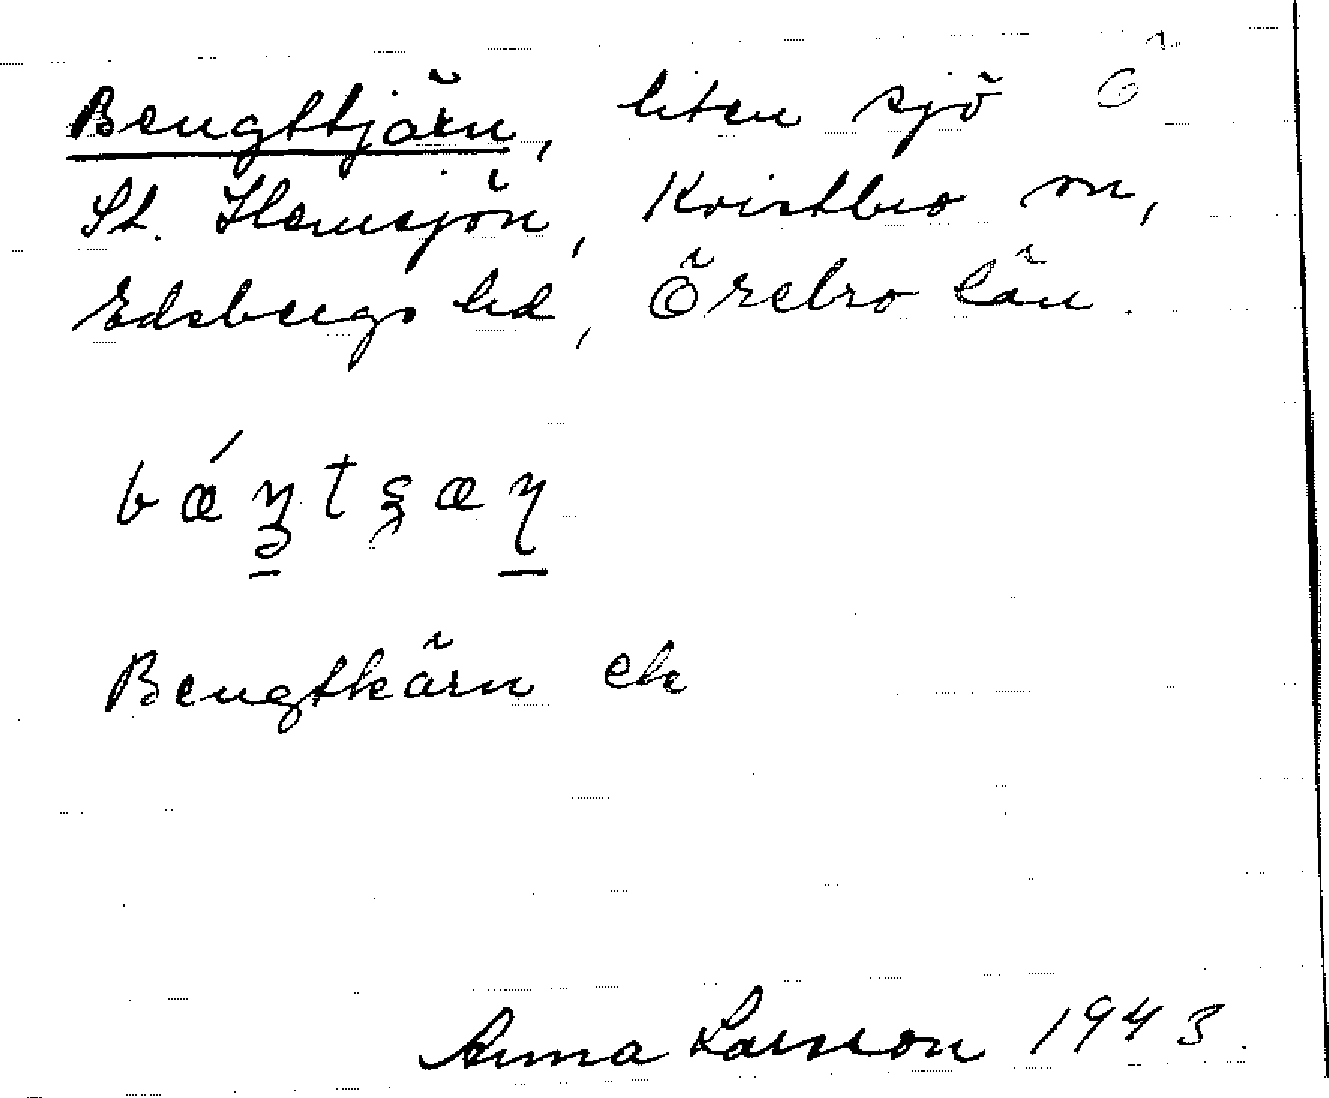 Bengttjärn, liten sjö Ö
St. Hemsjön, Kvistbro sn,
Edsbergs hd, Örebro län.
Bengtkärn ek
Anna Larsson 1943